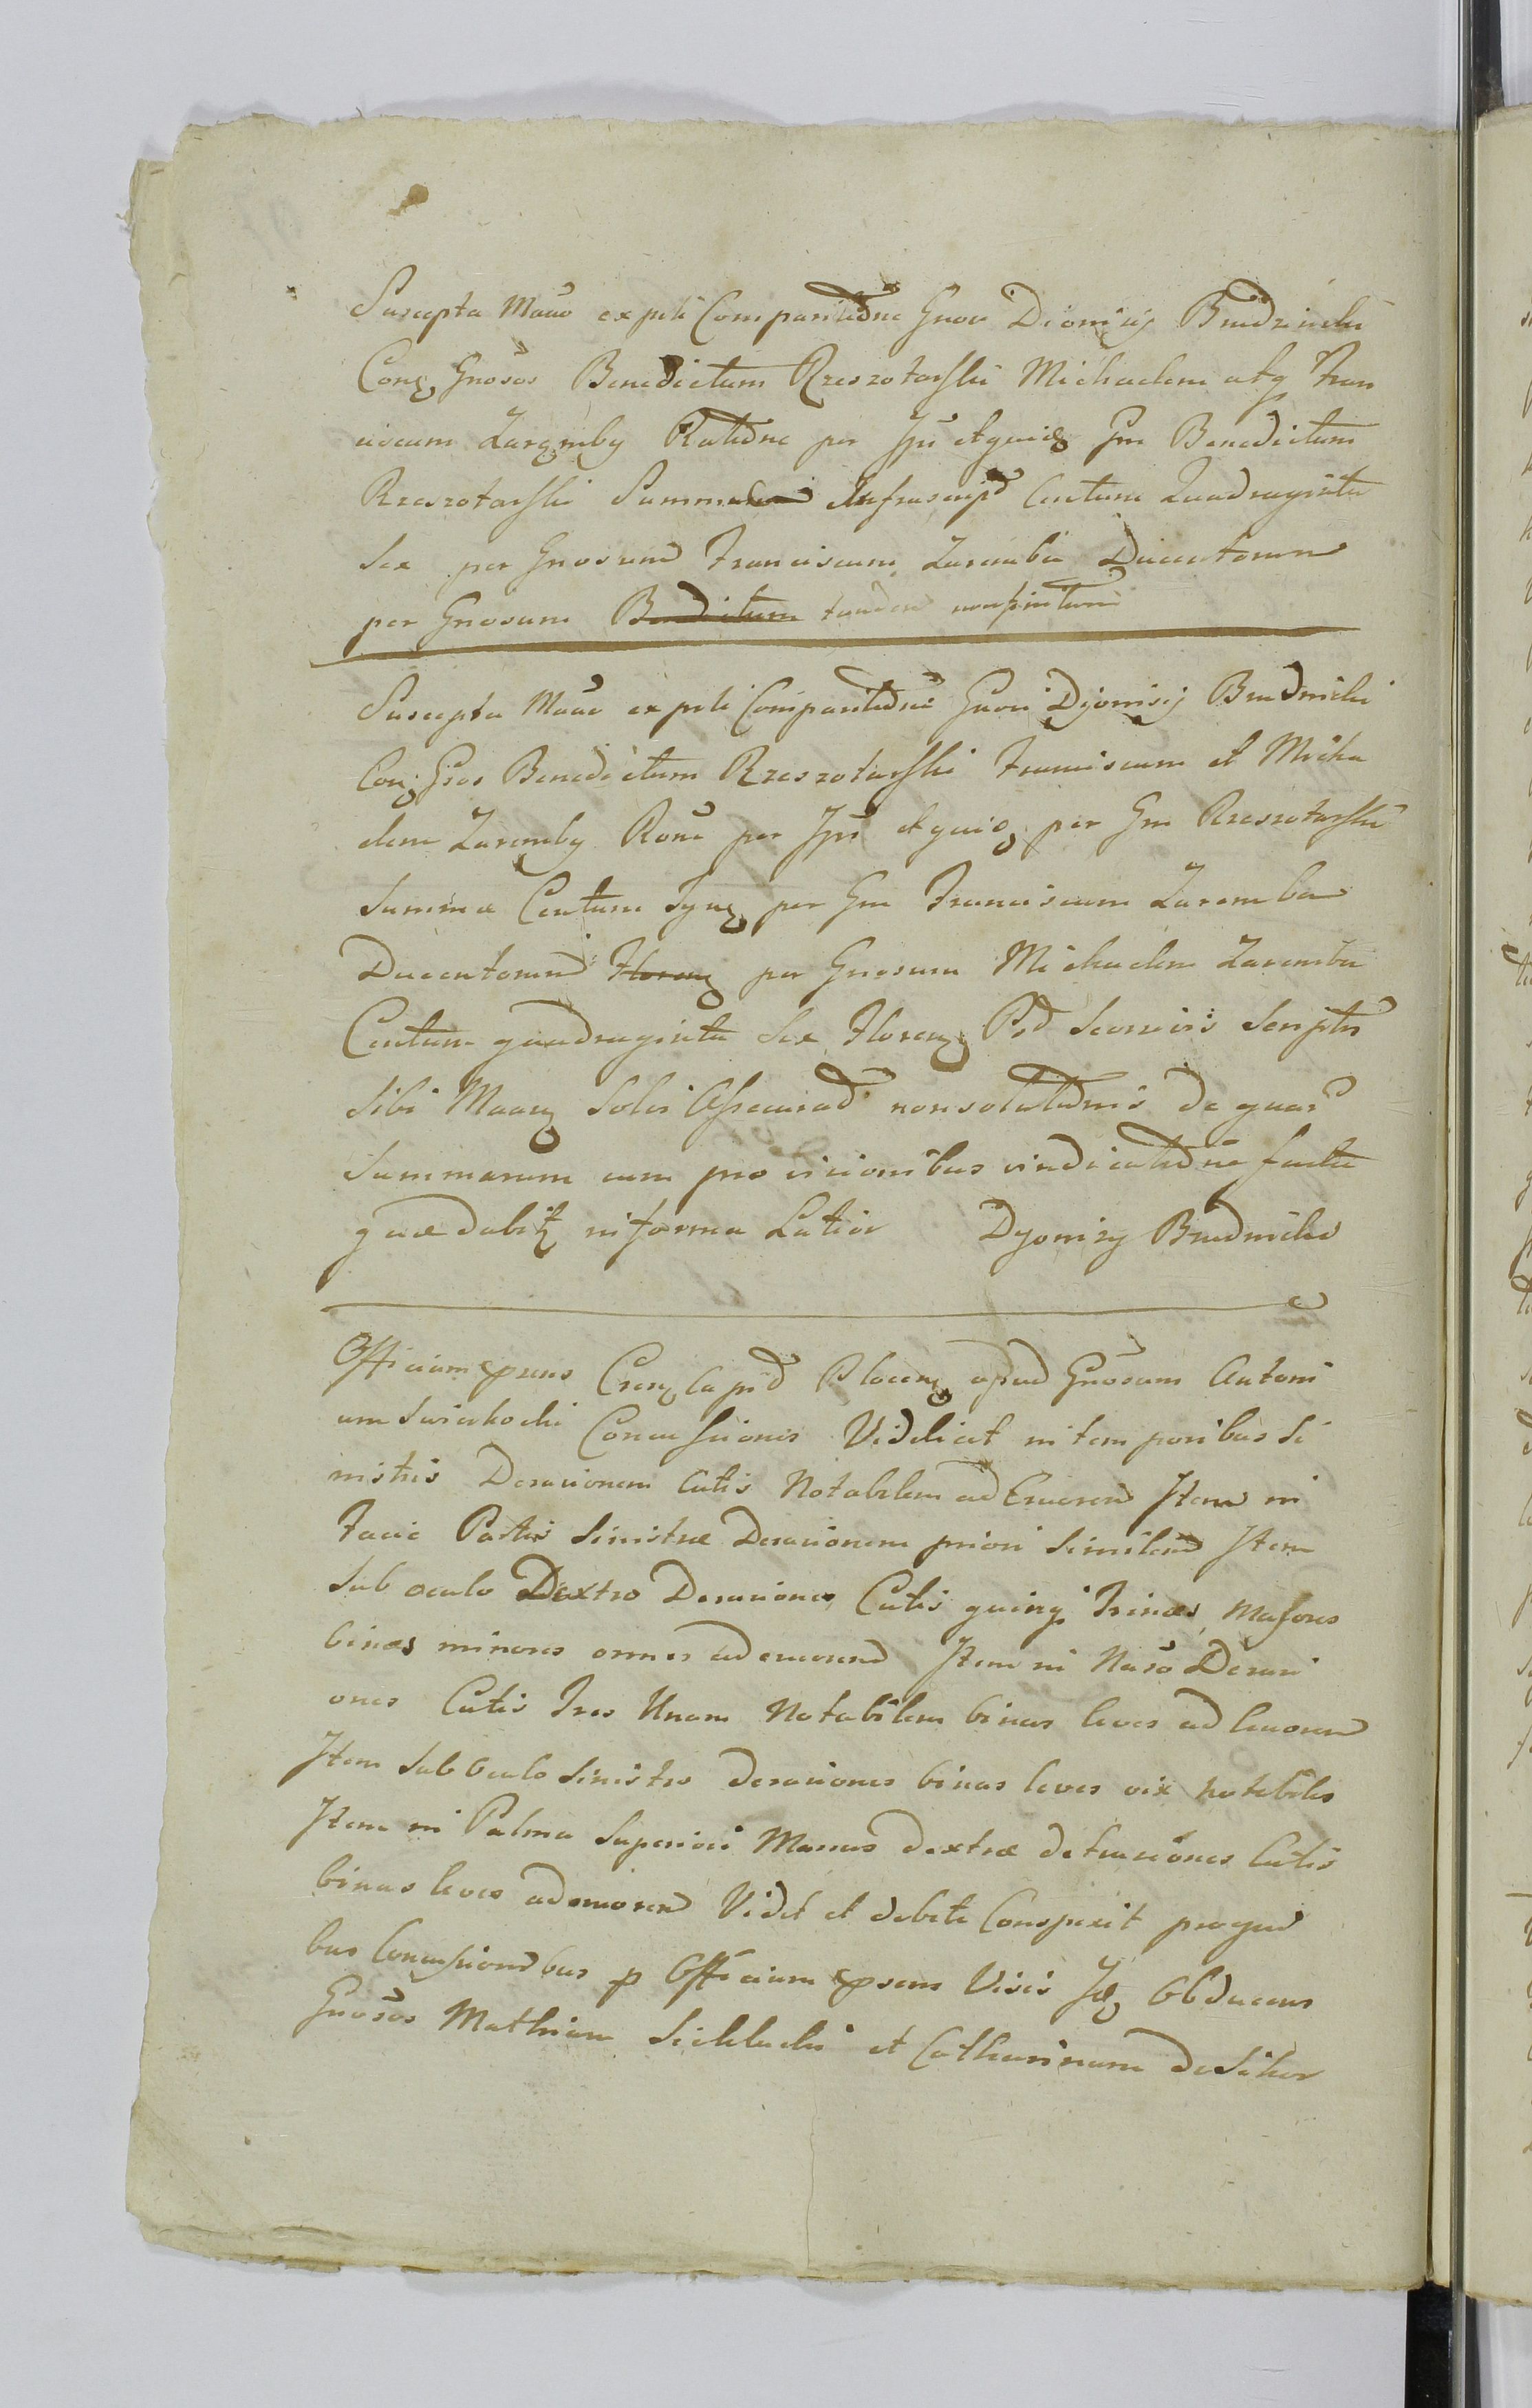 Suscepta Mane ex peti Comparitõne Gnovi Dionisij Brudzinski
Conq Gnosos Benedictum Rzeszotarski Michaelem atq Fran
ciscum Zaremby Ratiõne per Ipõ et quic Gm Benedictum
Rzeszotarski Infrascrip Centum Quadraginta
Sex per Gnosum Franciscum Zaremba Ducentorum
per Gnosum Benedictum
Suscepta Mane ex peti Comparitõne Gnovi Dyonisij Brudnicki
Conq Gsos Benedictum Rzeszotarski Franciscum et Micha
elem Zaremby Rone per Ipõ et quic per Gm Rzeszotarski
Summæ Centum per Gm Franciscum Zaremba
Ducentorum Florenq per Gnosum Michaelem Zaremba
Centum quadraginta Sex Florenq Pd Seorsivis Scriptis
Sibi Solvi Assecurad non solutiõnis de quar
Summarum cum provisionibus vindicatiõne facta
quæ dabitq in forma Latior Dyonizy Brudnicki
Officium prens Crenq Cap Plocenq apud Gnosum Antoni
um Swierkocki Concussiones Videlicet in temporibus Si
nistris Derasionem Cutis Notabilem ad Cruorem Item in
Facie Partis Sinistræ Derasionem priori Similem Item
Sub oculo Dextro Derasiones Cutis quinq Trinas Majores
binas minores omnes ad cruorem Item in Naso Derasi
ones Cutis Tres Unam Notabilem binas leves ad cruorem
Item Sub Oculo Sinistro derasiones binas leves vix notabiles
Item in Palma Superiori Manus dextræ detrasiones Cutis
binas leves ad cruorem Vidit et debite Conspexit pro qui
bus Concussionibus p Officium prens Visis Idq Obducens
Gnosos Mathiam et Catharinam de Sikor